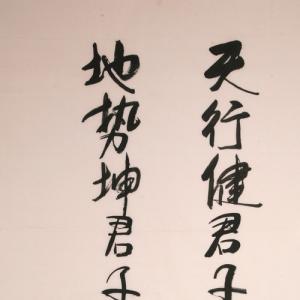 天行健君子
地势坤君子